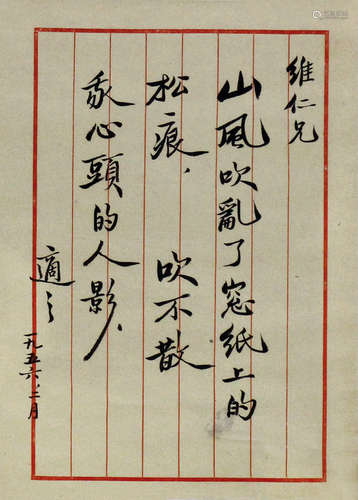 維仁兄
山風吹亂了窓紙上的
松痕,吹不散
我心頭的人影,
適之
一九五六,二月